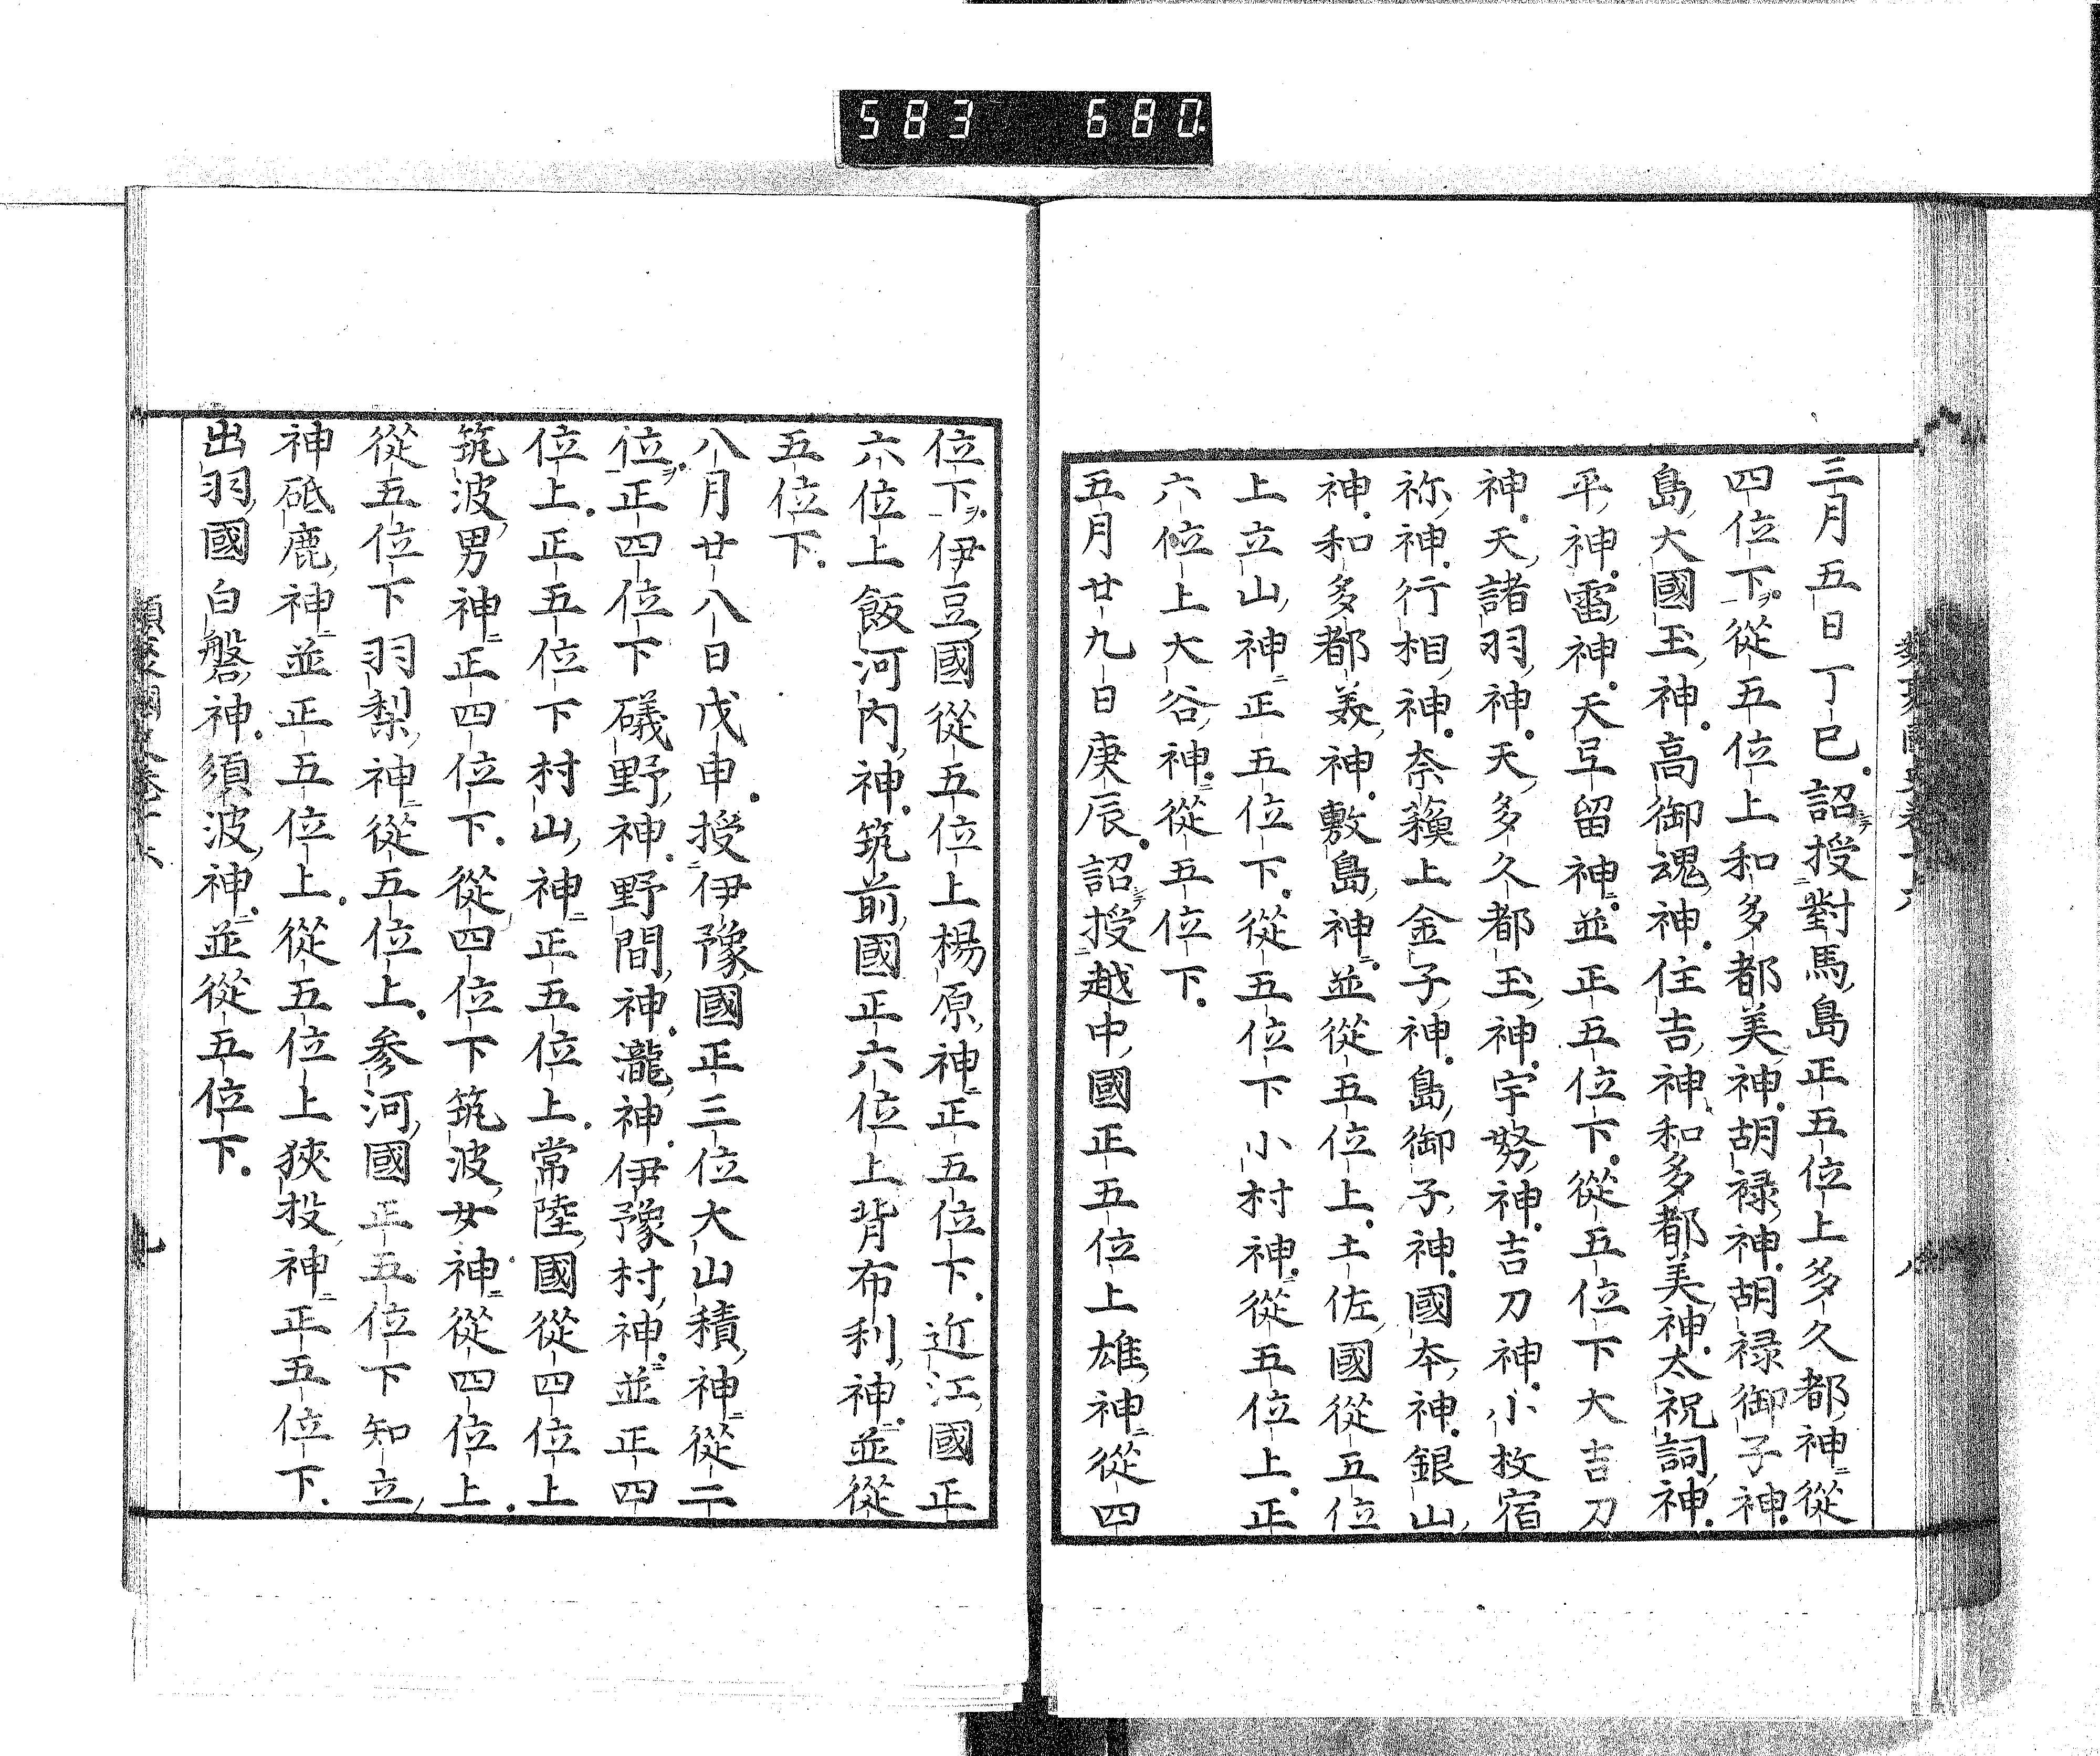 583 680
三月五日丁巳詔授對馬島正五位上多久都神從
四位下從五位上和多都美神胡禄神胡禄御子神
島大國玉神高御魂神住吉神和多都美神太祝詞神
平神雷神天𤴓留神並正五位下從五位下大吉刀
神天諸羽神天多久都玉神宇努神吉刀神小枚宿
祢神行相神奈蘓上金子神島御子神國夲神銀山
神和多都美神敷島神並從五位上土佐國從五位
上立山神正五位下從五位下小村神從五位上正
六位上大谷神從五位下
五月廿九日庚辰詔授越中國正五位上雄神從四
位下伊豆國從五位上楊原神正五位下近江國正
六位上飯河内神筑前國正六位上背布利神並從
五位下
八月廿八日戊申授伊豫國正三位大山積神從二
位正四位下礒野神野間神瀧神伊豫村神並正四
位上正五位下村山神正五位上常陸國從四位上
筑波男神正四位下從四位下筑波女神從四位上
從五位下羽梨神從五位上参河國正五位下知立
神砥鹿神並正五位上從五位上狹投神正五位下
出羽國白磐神須波神並從五位下